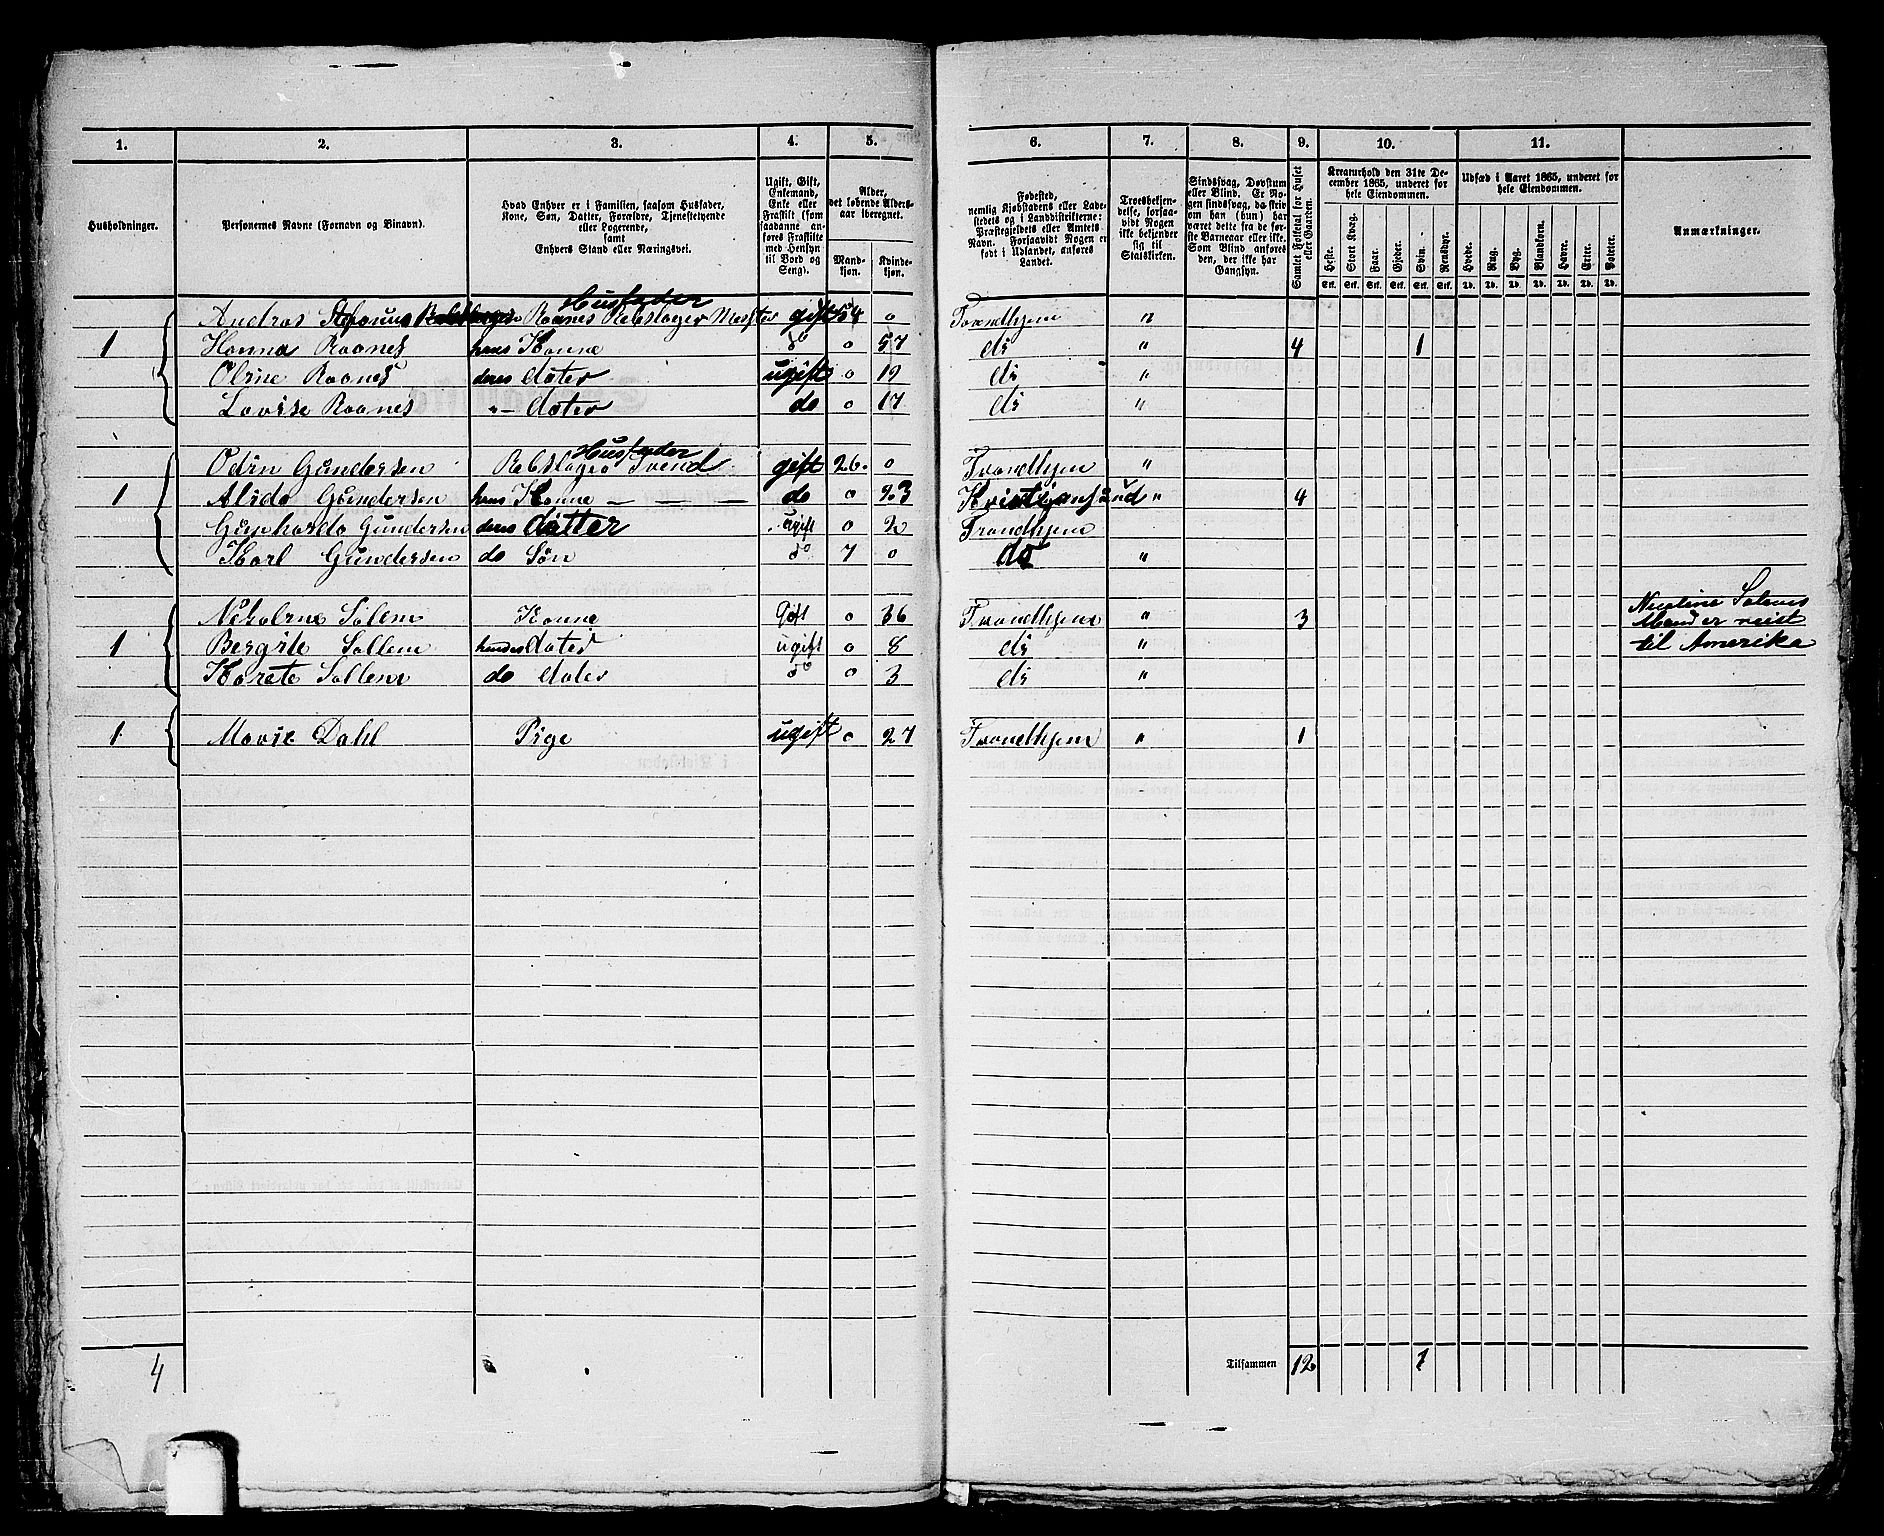 1. 2. 3. 4. 5. 6. 7. 8. 9. 10. 11.
Husholdninger.
Personernes Navne (Fornavn og Binavn).
Hvad Enhver er i Familien, saasom Husfader,
Kone, Søn, Datter, Forældre, Tjenestetyende
eller Logerende,
samt
Enhvers Stand eller Næringsvei.
Ugift, Gift,
Enkemand,
Enke eller
Fraskilt (som
saadanne an-
føres Fraskilte
med Hensyn
til Bord og
Seng).
Alder,
det løbende Alders-
aar iberegnet.
Mand-
kjøn.
Kvinde-
kjøn.
Fødested,
nemlig Kjøbstadens eller Lade-
stedets og i Landdistrikterne:
Præstegjeldets eller Amtets
Navn. Forsaavidt Nogen er
født i Udlandet, anføres
Landet.
Troesbekjen-
delse, forsaa-
vidt Nogen
ikke bekjender
sig til
Statskirken.
Sindssvag, Døvstum
eller Blind. Er No-
gen sindssvag, da skriv
om han (hun) har
været dette fra de før-
ste Barneaar eller ikke.
Som Blind anføres
den, der ikke har
Gangsyn.
Samlet Folketal for Huset
eller Gaarden.
Kreaturhold den 31te De-
cember 1865, underet for
hele Eiendommen.
Heste. Stort Kvæg. Faar. Gjeder. Svin. Rensdyr.
Stk. Stk. Stk. Stk. Stk. Stk.
Udsæd i Aaret 1865, underet for
hele Eiendommen.
Hvede. Rug. Byg. Blandkorn. Havre. Erter. Poteter.
Td. Td. Td. Td. Td. Td. Td.
Anmærkninger.
Husfader
Andras Stefanus Raanes Rebslager Mester gift 54 0 Trondhjem "
1 Hanna Raanes hans Konne do 0 57 do " 4 1
Oline Raanes deres dater ugift 0 19 do "
Lovise Raanes "- dater do 0 17 do "
Husfader
Odin Gundersen Rebslager Svend gift 26. 0 Trondhjem "
1 Alida Gundersen hans Konne - - - do 0 23 Kristjansund " 4
Gunharda Gundersen deres datter ugift 0 2 Trondhjem
Karl Gundersen do Søn do 7 0 do "
Nekoline Solem Konne Gift 0 36 Trondhjem " 3 Nicoline Solems
1 Bergite Sollem hendes dater ugift 0 8 do " Mand er reist
Karete Sollem do dater do 0 3 do " til Amerika
1 Marie Dahl Pige ugift 0 27 Trondhjem " 1
4 Tilsammen 12 1